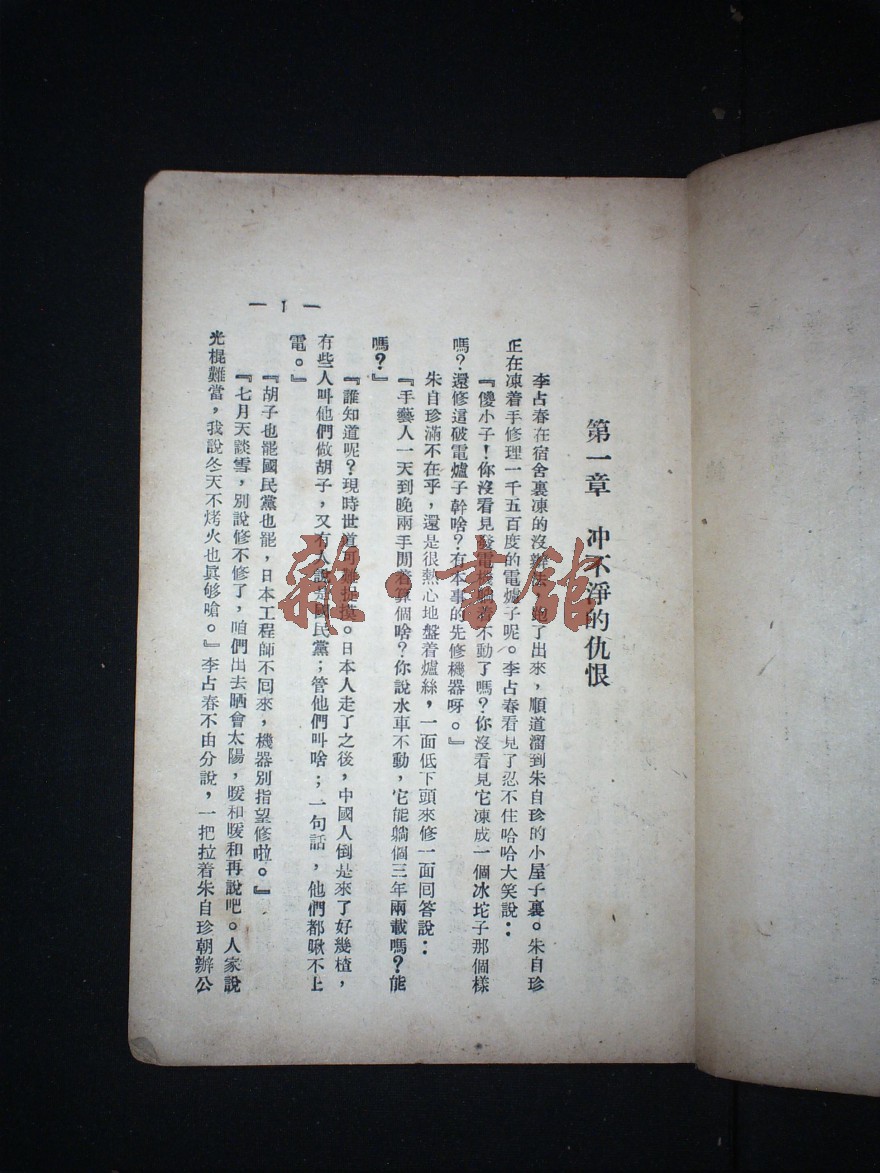 第一章　冲不淨的仇恨
李占春在宿舍裏凍的沒辦法，跑了出來，順道溜到朱自珍的小屋子裏。朱自珍
正在凍着手修理一千五百度的電爐子呢。李占春看見了忍不住哈哈大笑說：
『傻小子！你沒看見發電機躺着不動了嗎？你沒看見它凍成一個冰坨子那個樣
嗎？還修這破電爐子幹啥？有本事的先修機器呀。』
朱自珍滿不在乎，還是很熱心地盤着爐絲，一面低下頭來修一面回答說：
『手藝人一天到晚兩手閒着算個啥？你說水車不動，它能躺個三年兩載嗎？能
嗎？』
『誰知道呢？現時世道可難捉摸。日本人走了之後，中國人倒是來了好幾楂，
有些人叫他們做胡子，又有人說是國民黨；管他們叫啥；一句話，他們都瞅不上
電。』
『胡子也罷國民黨也罷，日本工程師不回來，機器別指望修啦。』
『七月天談雪，別說修不修了，咱們出去晒會太陽，暖和暖和再說吧。人家說
光棍難當，我說冬天不烤火也眞够嗆。』李占春不由分說，一把拉着朱自珍朝辦公
— 1 —
雜·書館